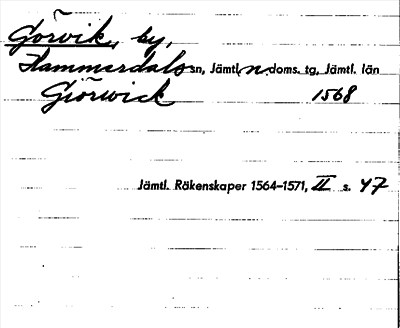 Görvik, by,
Hammerdals sn, Jämtl. n. doms. tg, Jämtl. län
Giörwick 1568
Jämtl. Räkenskaper 1564–1571, II s. 47